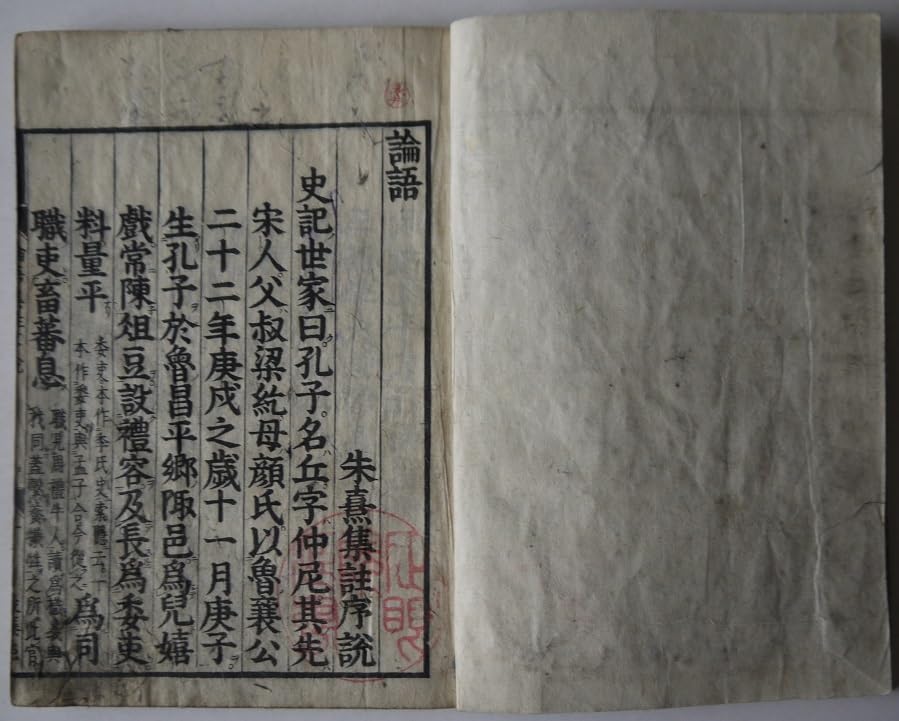 論語
朱熹集註序說
史記世家曰孔子名丘字仲尼其先
宋人父叔梁紇母顏氏以魯襄公
二十二年庚戌之歲十一月庚子
生孔子於魯昌平鄉陬邑爲兒嬉
戲常陳俎豆設禮容及長爲委吏
料量平
委吏本作季氏史索隱云一
本作委吏與孟子合今從之
爲司
職吏畜蕃息
職見周禮牛人讀爲樴義與
杙同蓋繫養犧牲之所此官